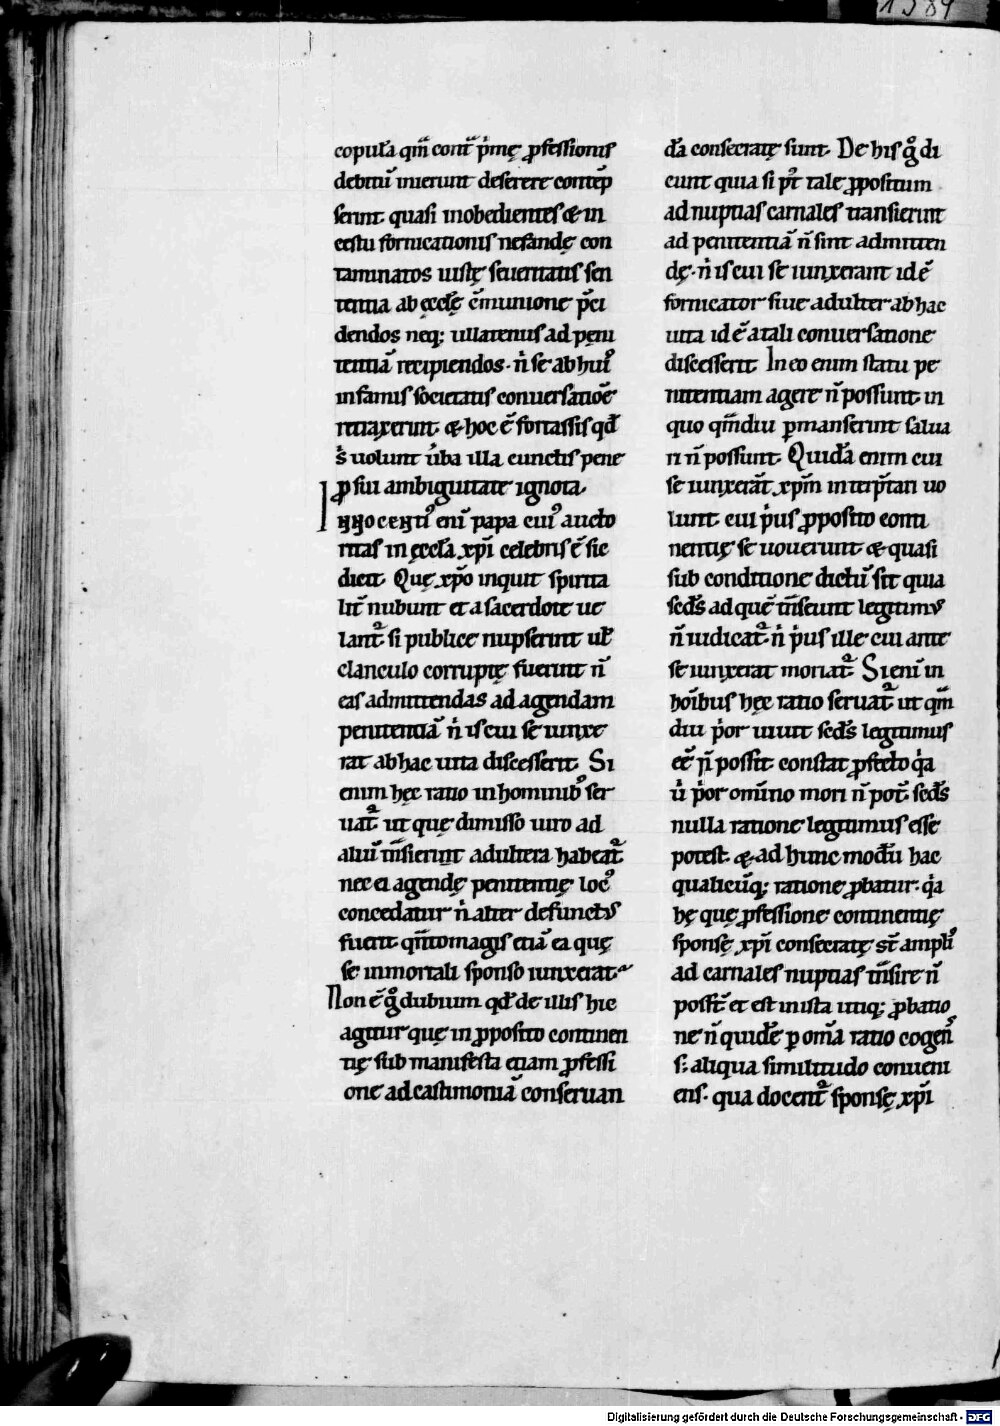 copul̄a qm̄ cont̄ p̓mę ꝓfessionis
debitū inierunt deserere contēp
serint. quasi inobedientes & in
cestu fornicationis nefandę con
taminatos iustę seueritatis sen
tentia ab ęccl̄ę c̄munione p̄ci
dendos neq; ullatenus ad peni
tentiā recipiendos· n̓ se ab huiꝰ
infamis societatis conuersatiōe
ritraxerint. & hoc ē fortassis qd̄
s̓ uolunt úba illa cunctis pene
ꝓ sui ambiguitate ignota.
INNOCENTIꝰ enī papa cuiꝰ aucto
ritas in ęccl̄a xp̄i celebris ē sic
dicit. Quę xp̄o inquit spirita
lit̄ nubunt et a sacerdote ue
lant᷑ si publice nupserint ul̄
clanculo corruptę fuerint n̄
eas admittendas ad agendam
penitentiā n̓ is cui se iunxe
rat ab hac uita discesserit. Si
enim hęc ratio in hominibꝰ ser
uat᷑ ut quę dimisso uiro ad
aliū t̄nsierint adultera habeat᷑
nec ei agendę penitentię locꝰ
concedatur n̓ alter defunctus
fuerit. qn̄tomagis etiā ea quę
se inmortali sponso iunxerat.
Non ē g̊ dubium qd̄ de illis hic
agitur quę in ꝓposito continen
tię sub manifesta etiam ꝓfessi
one ad castimoniā conseruan
dā consecratę sunt. De his g̊ di
cunt quia si pr̄ tale ꝓpositum
ad nuptias carnales transierint
ad penitentiā n̄ sint admitten
dę· n̓ is cui se iunxerant id ē
fornicator siue adulter ab hac
uita id ē a tali conuersatione
discesserit. In eo enim statu pe
nitentiam agere n̄ possunt. in
quo qm̄diu ꝑmanserint salua
ri n̄ possunt. Quidā enim cui
se iunxerāt xp̄m interp̄tari uo
lunt. cui p̓us ꝓposito conti
nentię se uouerunt. & quasi
sub conditione dictū sit quia
scd̄s ad quē t̄nseunt legitimus
n̄ iudicat᷑ n̓ p̓us ille cui ante
se iunxerat moriat᷑. Si enī in
hoībus hęc ratio seruat᷑ ut qm̄
diu p̓or uiuit scd̄s legitimus
eē n̄ possit. constat ꝓfecto q̓a
ú p̓or omīno mori n̄ pot̄. scd̄s
nulla ratione legitimus esse
potest. & ad hunc modū hac
qualicūq; ratione ꝓbatur. q̓a
hę quę ꝓfessione continentię
sponsę xp̄i consecratę st̄ ampliꝰ
ad carnales nuptias t̄nsire n̄
possīt. et est in ista utiq; ꝓbatio
ne n̄ quidē ꝑ om̄a ratio cogens̄
s; aliqua similitudo conueni
ens. qua docent᷑ sponsę xp̄i
Digitalisierung gefördert durch die Deutsche Forschungsgemeinschaft - DFG